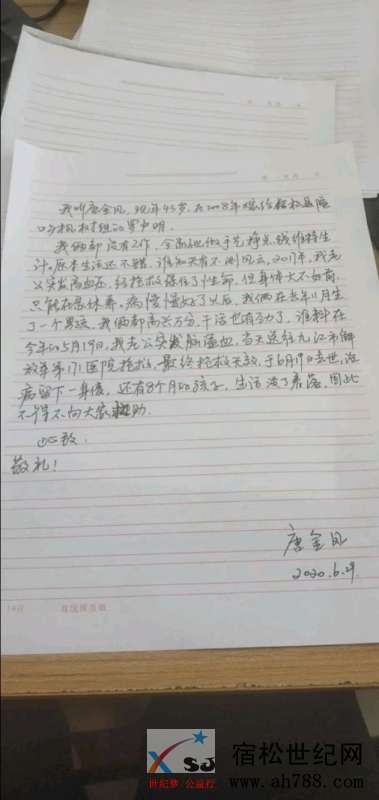 我叫唐金凤，现年43岁，在2008年嫁给宿松县隘
口乡枫村组的罗
我俩都没有工作，全靠他做手艺挣点钱维持生
计。原本生活还不错，谁知天有不测风云，2017年，我老
公突发高血压，经抢救保住了性命，但身体大不如前，
只能在家休养。病慢慢好了以后，我俩在去年11月生
了一个男孩，我俩都高兴万分，干活也有劲了。谁料在
今年的5月19日，我老公突发脑溢血，当天送往九江市解
放军第171医院抢救，最终抢救无效，于6月19日去世，治
病留下一身债，还有8个月的孩子，生活没了着落，因此
不得不向大家助
此致
敬礼！
唐金凤
2020.6.29
世纪梦 公益行
SJ
宿松世纪网
www.ah788.com